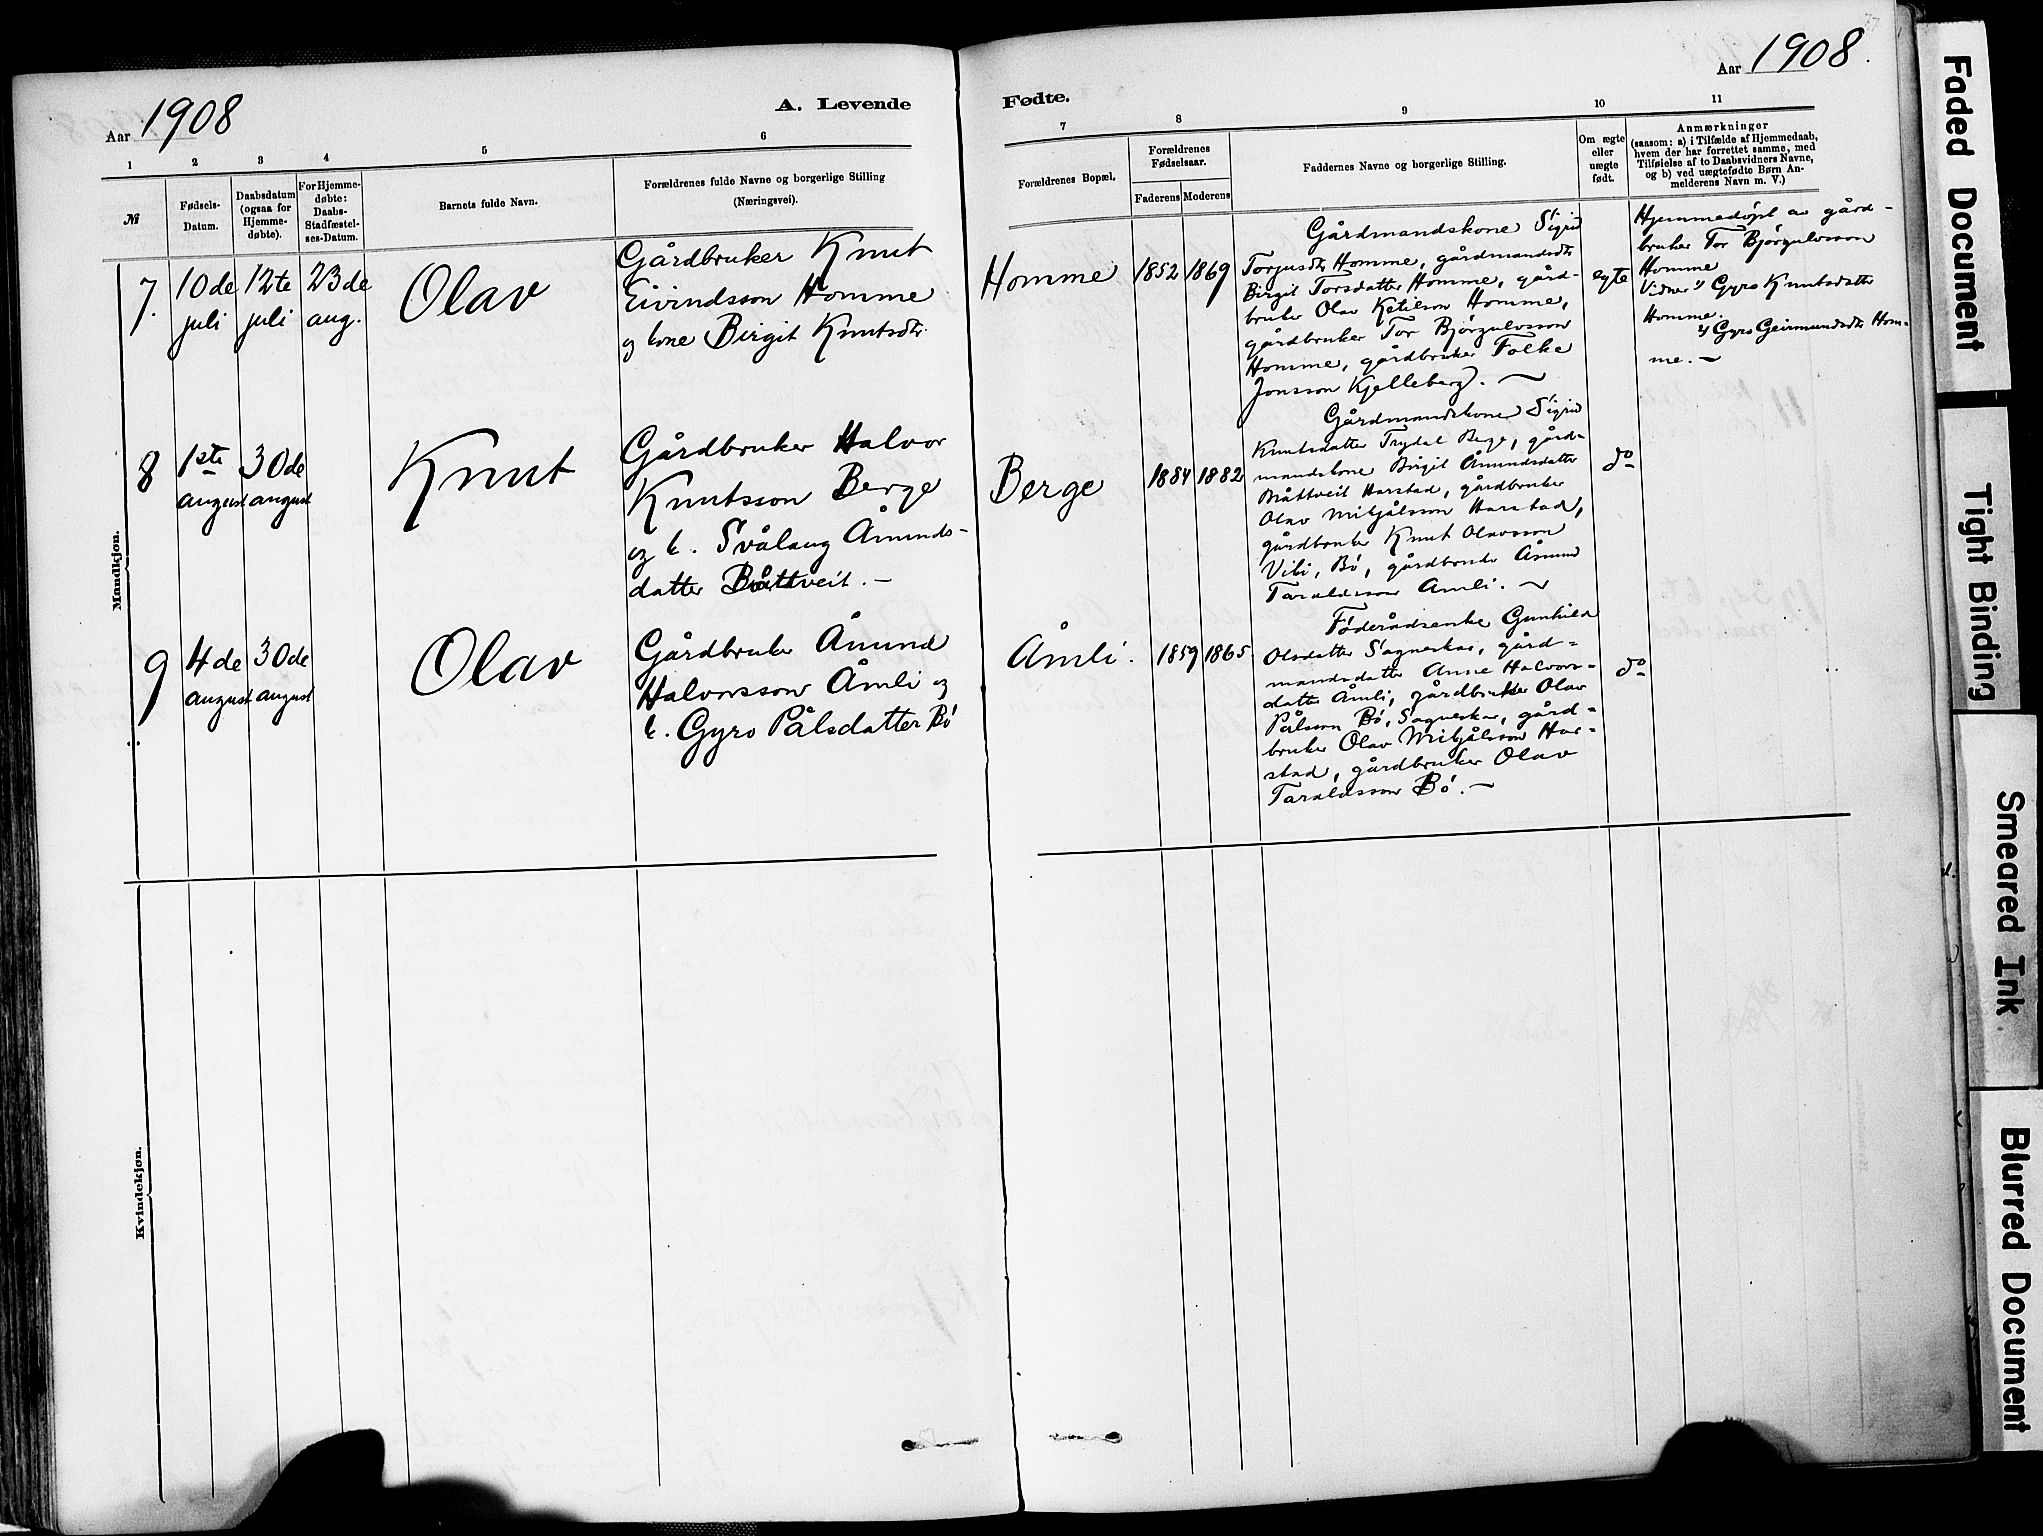 Aar 1908
A. Levende
1 2 3 4 5 6
№
Fødsels-
Datum.
Daabsdatum
(ogsaa for
Hjemme-
døbte).
For Hjemme-
døbte:
Daabs-
Stadfæstel-
ses-Datum.
Barnets fulde Navn.
Forældrenes fulde Navne og borgerlige Stilling
(Næringsvei).
Mandkjøn.
7.
10de
juli
12te
juli
23de
aug.
Olav
Gårdbruker Knut
Eivindsson Homme
og kone Birgit Knutsdtr.
8
1ste
august
30de
august
Knut
Gårdbruker Halvor
Knutsson Berge
og k. Svålaug Åmunds-
datter Båttveit. –
9
4de
august
30de
august
Olav
Gårdbruker Åmund
Halvorsson Åmli og
k. Gyro Pålsdatter Bø
Kvindekjøn.
Fødte.
Aar 1908.
7 8 9 10 11
Forældrenes Bopæl.
Forældrenes
Fødselsaar.
Faderens Moderens
Faddernes Navne og borgerlige Stilling.
Om ægte
eller
uægte
født.
Anmærkninger
(saasom: a) i Tilfælde af Hjemmedaab,
hvem der har forrettet samme, med
Tilføielse af to Daabsvidners Navne,
og b) ved uægtefødte Børn An-
melderens Navn m. V.)
Homme
1852 1869
Gårdmandskone Sigrid
Torjusdtr Homme, gårdmandsdtr
Birgit Torsdatter Homme, gård-
bruker Olav Ketilson Homme,
gårdbruker Tor Bjørgulvsson
Homme, gårdbruker Folke
Jonsson Kjelleberg. –
egte
Hjemmedøpt av gård-
bruker Tor Bjørgulvsson
Homme
Vidner 1) Gyro Knutsdatter
Homme.
2) Gyro Geirmundsdtr Hom-
me. –
Berge
1884 1882
Gårdmandskone Sigrid
Knutsdatter Trydal Berge, gård-
mandskone Birgit Åmundsdatter
Båttveit Harstad, gårdbruker
Olav Mikjålsson Harstad,
gårdbruker Knut Olavsson
Viki, Bø, gårdbruker Åmund
Taraldsson Åmli. –
do
Åmli.
1859 1865
Føderådsenke Gunhild
Olsdatter Sagneskar, gård-
mandsdatter Anne Halvors-
datter Åmli, gårdbruker Olav
Pålsson Bø, Sagneskar, gård-
bruker Olav Mikjålsson Har-
stad, gårdbruker Olav
Taraldsson Bø. –
do
Faded Document
Tight Binding
Smeared Ink
Blurred Document